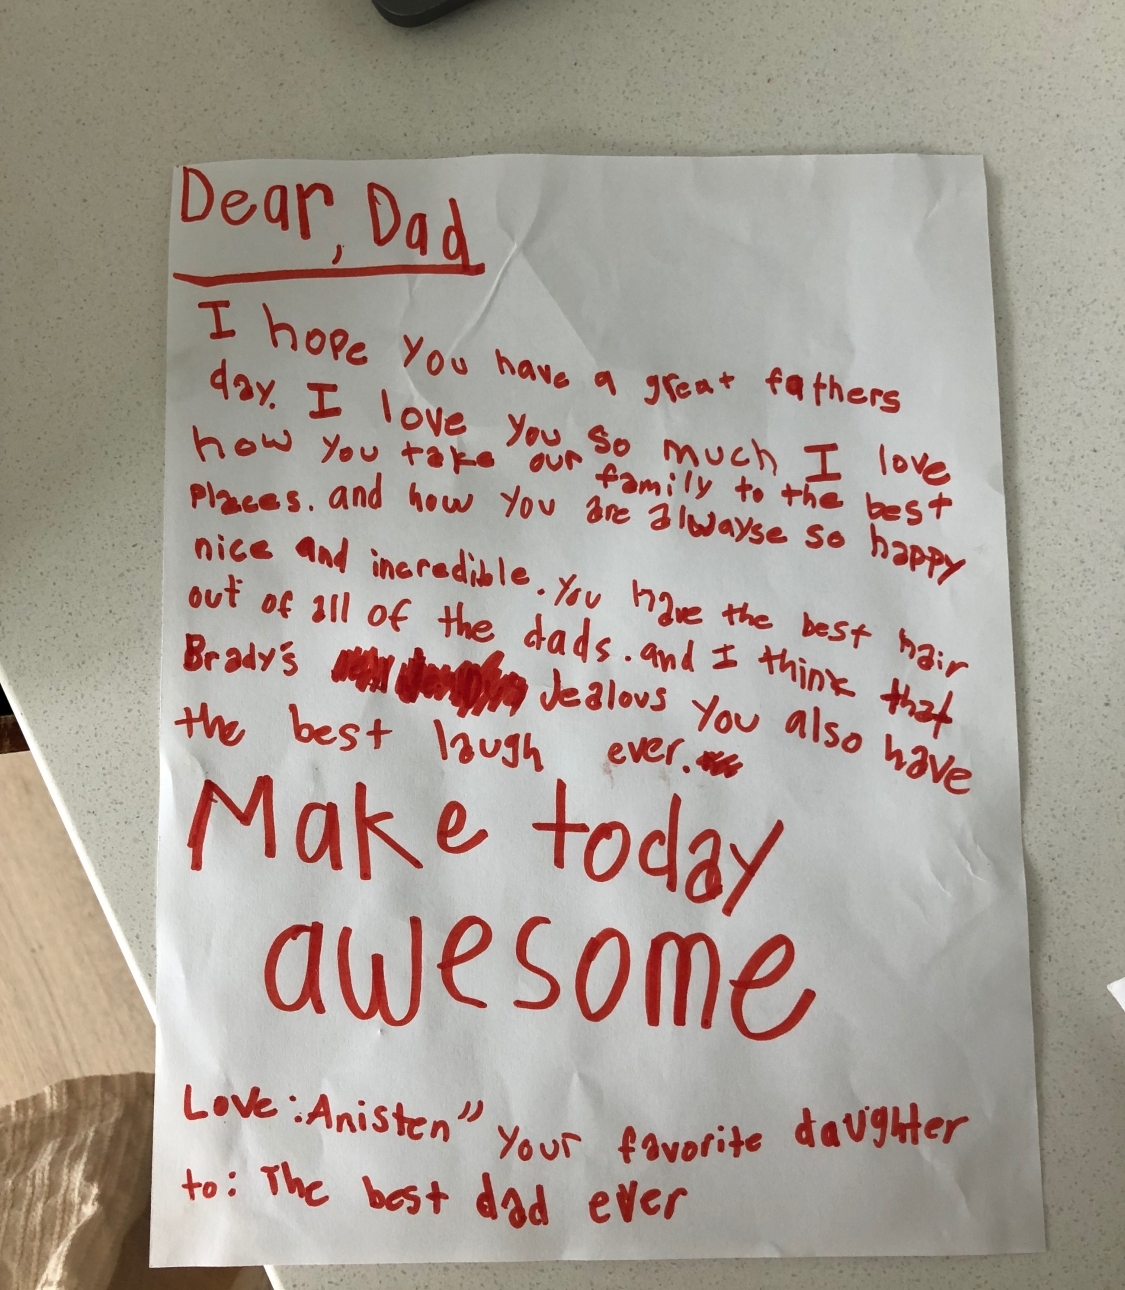 Dear, Dad
I hope you have a great fathers
day. I love you so much I love
how you take our family to the best
places. and how you are alwayse so happy
nice and incredible. You have the best hair
out of all of the dads. and I think that
Brady's Jealous you also have
the best laugh ever.
Make today
awesome
Love: Anisten" your favorite daughter
to: The best dad ever